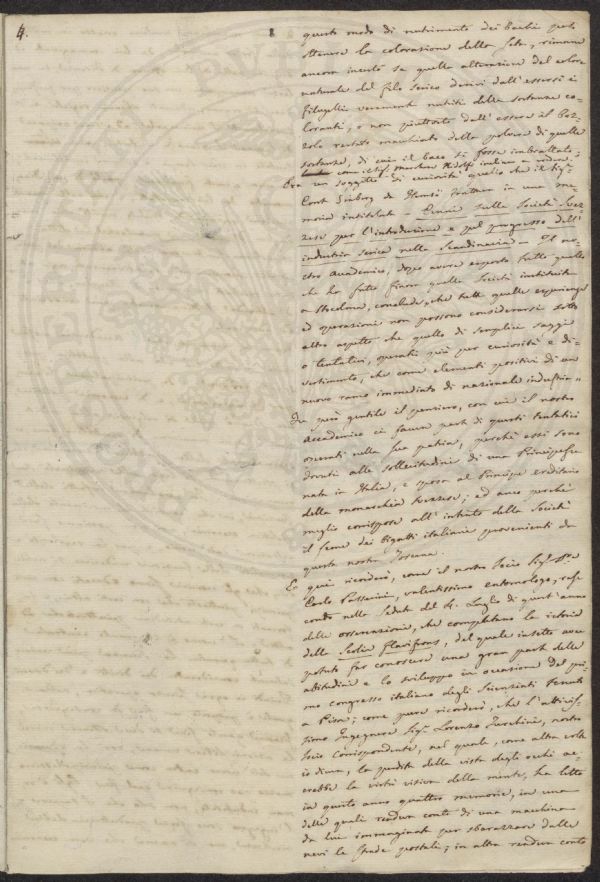 4.
questo modo di nutrimento dei bachi possa
ottenere la colorazione della seta, rimane
ancora incerto se quella alterazione del colore
naturale del filo serico derivi dall'essersi i
filugelli veramente nutriti delle sostanze co-
loranti, o non piuttosto dall'essere il boz-
zolo restato macchiato dalla polvere di quelle
sostanze, di cui il baco si fosse imbrattato,
come il Sig. Marchese Ridolfi inclina a credere.
Era un soggetto di curiosità quello che il Sig.
Conte di in una me-
moria intitolata - Cenni sulla Società Svez-
zese per l'introduzione e pel progresso dell'
industria serica nella Scandinavia - Il no-
stro Accademico, dopo avere esposto tutto quello
che ha fatto finora quella Società instituita
a Stocolma, conclude, che tutte quelle esperienze
ed operazioni non possono considerarsi sotto
altro aspetto che quello di semplici saggi
o tentativi, operati più per curiosità e di-
vertimento, che come elementi positivi di un
nuovo ramo immediato di nazionale industria.
Fu però gentile il pensiero, con cui il nostro
Accademico ci faceva parte di questi tentativi
operati nella sua patria, perchè essi sono
dovuti alle sollecitudini di una Principessa
nata in Italia, e sposa al Principe ereditario
della monarchia svezzese; ed anco perchè
meglio corrispose all'intento della Società
il seme dei bigatti italiani provenienti da
questa nostra Toscana.
E quì ricorderò, come il nostro Socio Sig.
Carlo Passerini, valentissimo entomologo, rese
conto nella seduta del 4. Luglio di quest'anno
delle osservazioni, che completano la istoria
della Scolia flavifrons, del quale insetto avea
potuto far conoscere una gran parte delle
abitudini e lo sviluppo in occasione del pri-
mo congresso italiano degli Scienziati tenuto
a Pisa; come pure ricorderò, che l'attivis-
simo Ingegnere Sig. Lorenzo Turchini, nostro
Socio Corrispondente, nel quale, come altra volta
io diceva, la perdita della vista degli occhi ac-
crebbe la virtù visiva della mente, ha letto
in quest'anno quattro memorie, in una
delle quali rendeva conto di una macchina
da lui immaginata per sbarazzare dalle
nevi le strade postali; in altra rendeva conto